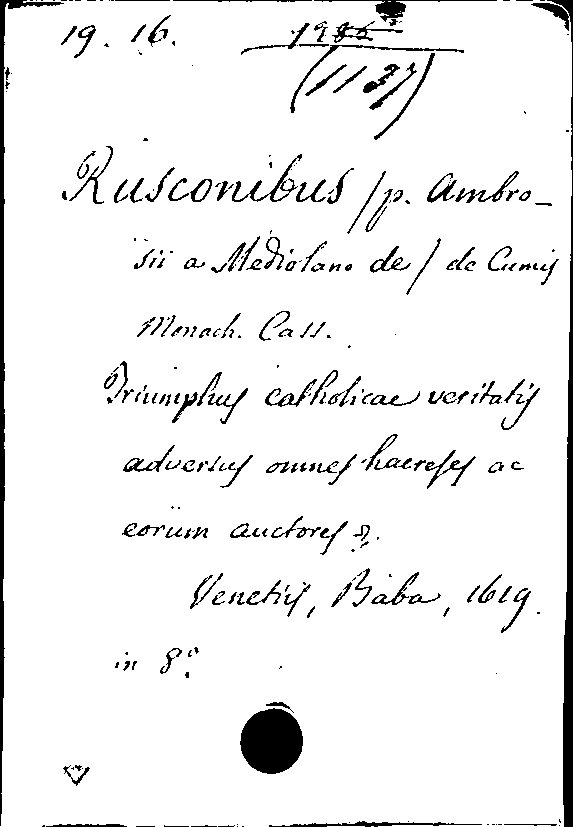 19. 16.
(1137)
Rusconibus /p. Ambro-
sii a Mediolano de/ de Cumis
Monach. Cass.
Triumphus catholicae veritatis
adversus omnes haereses ac
eorum auctores
Venetiis, Baba, 1619.
in 8°.